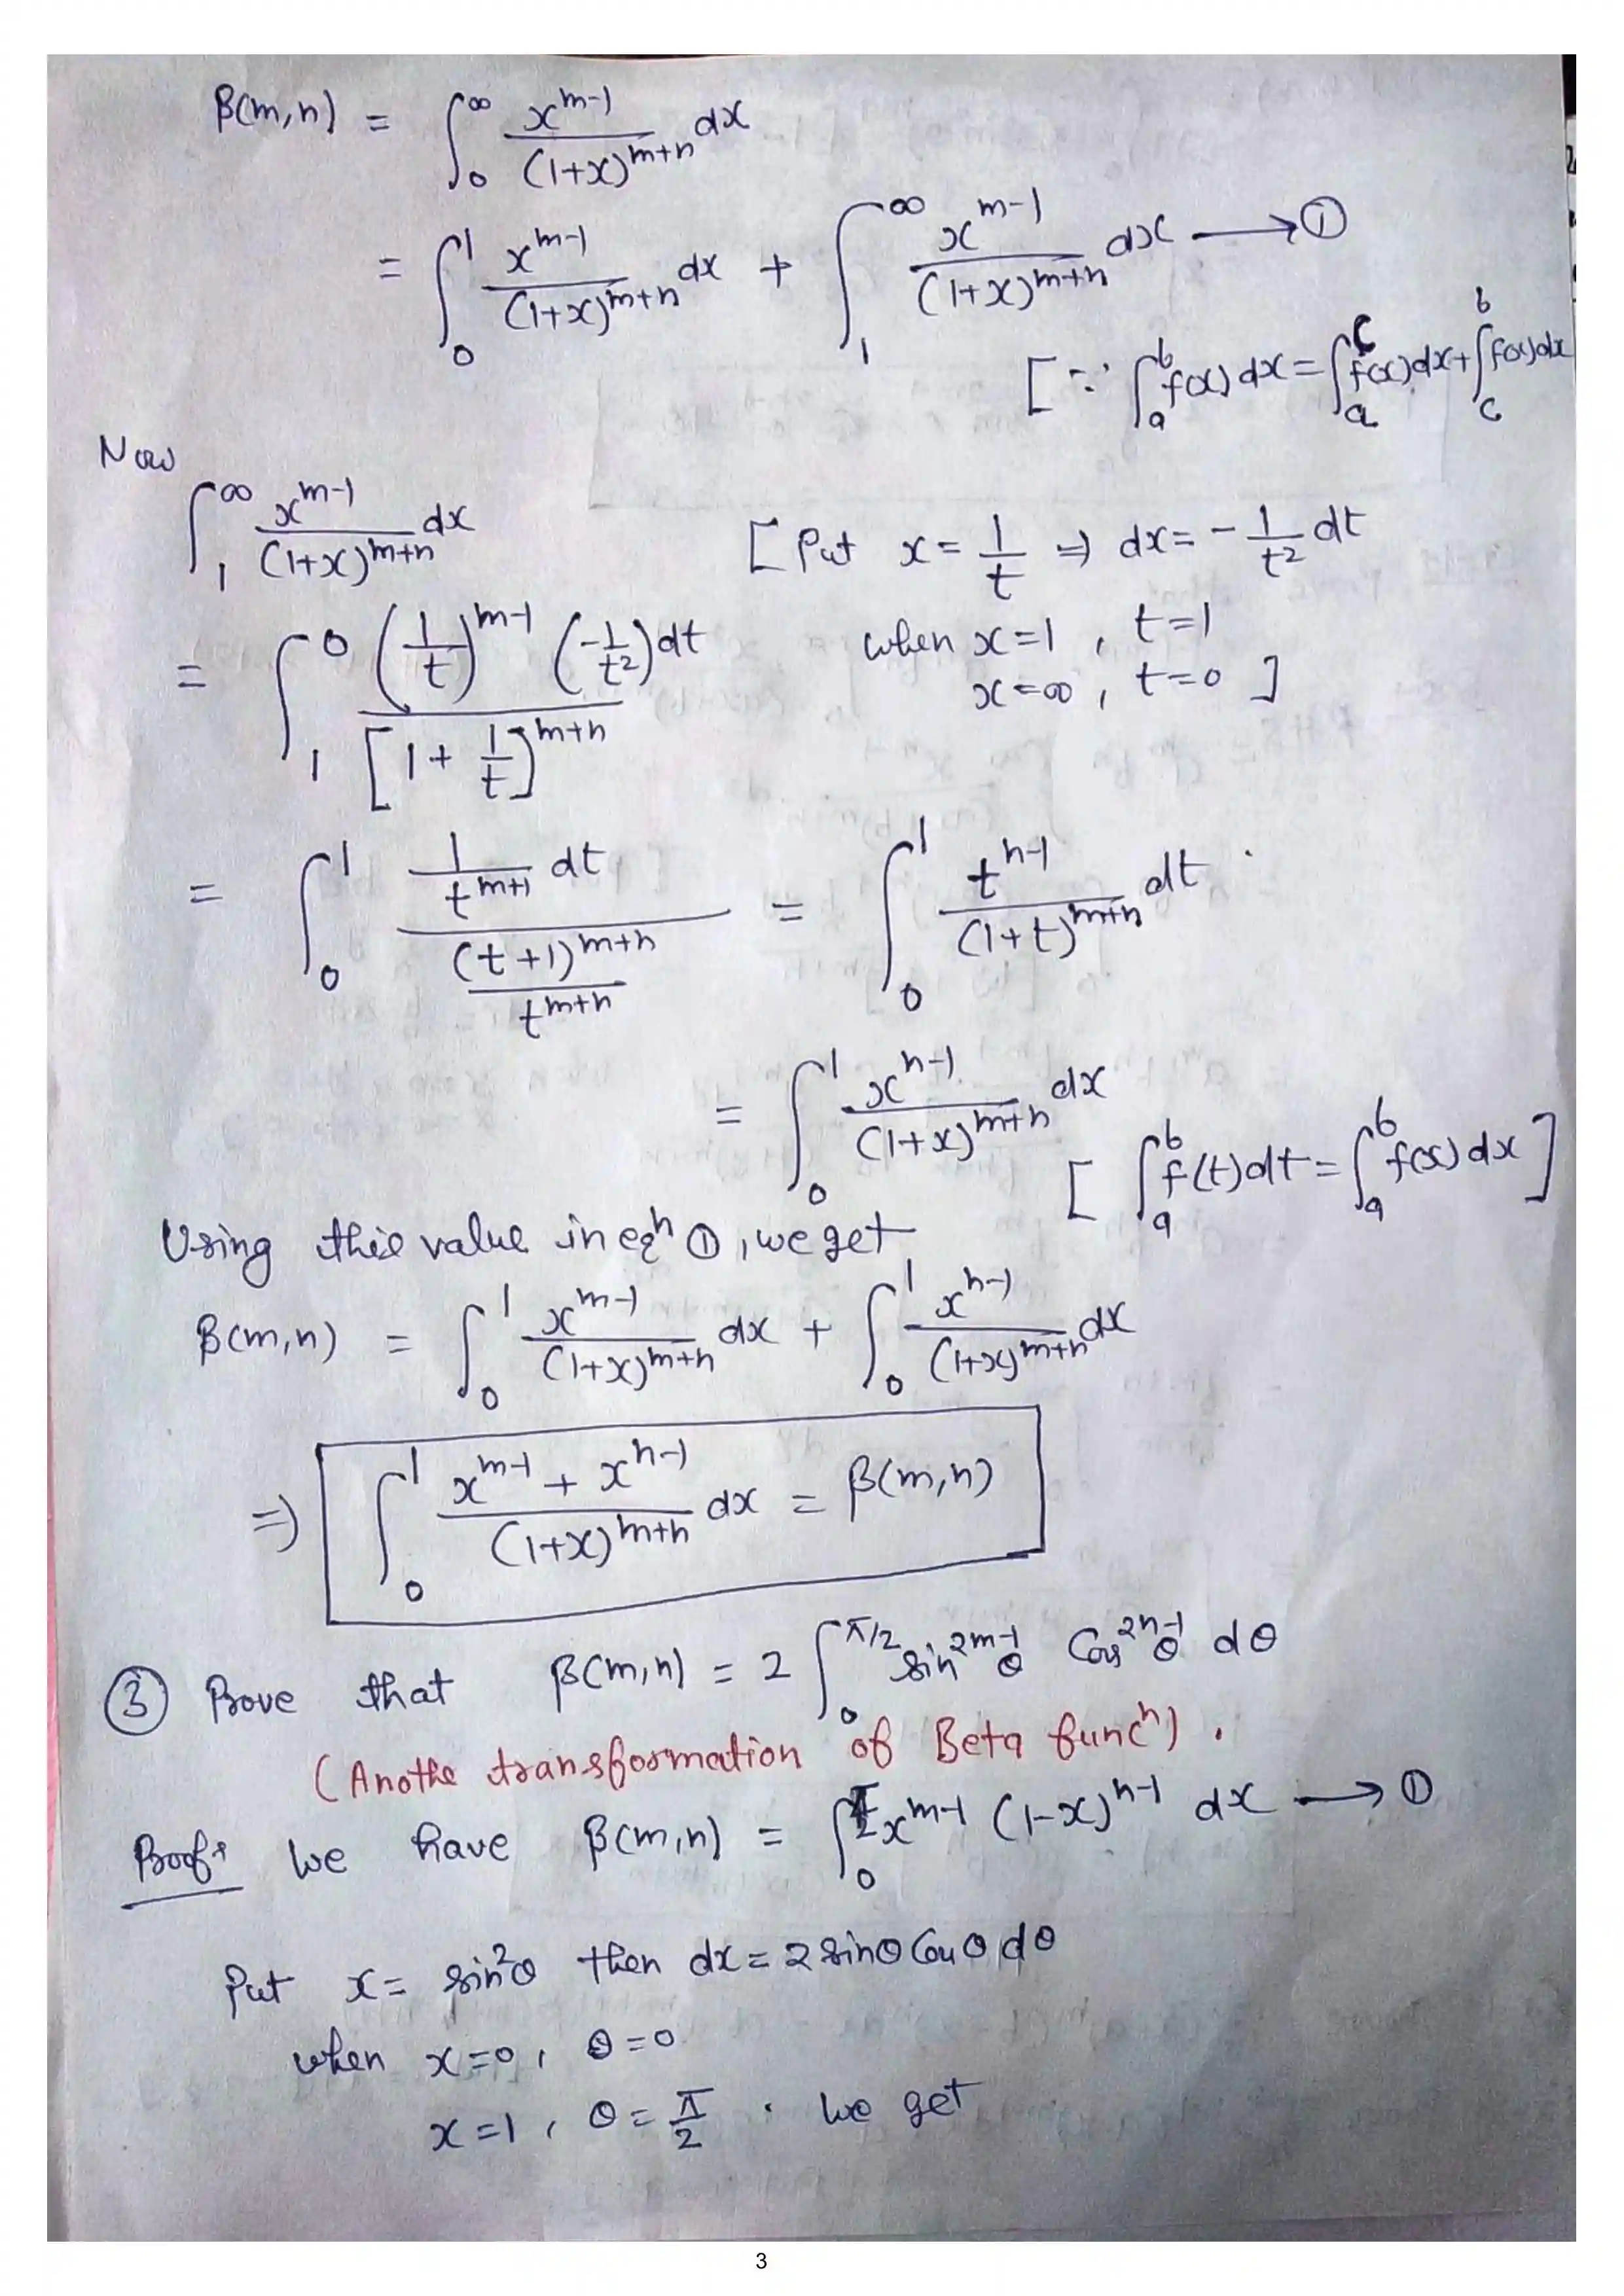 β(m,n) = ∫₀^∞ x^(m-1)/(1+x)^(m+n) dx
= ∫₀^1 x^(m-1)/(1+x)^(m+n) dx + ∫₁^∞ x^(m-1)/(1+x)^(m+n) dx ⟶ ①
[∵ ∫ₐ^b f(x) dx = ∫ₐ^c f(x) dx + ∫_c^b f(x) dx
Now
∫₁^∞ x^(m-1)/(1+x)^(m+n) dx [Put x = 1/t ⇒ dx = -1/t² dt
when x=1, t=1
= ∫₁^0 (1/t)^(m-1) (-1/t²) dt / [1 + 1/t]^(m+n) x=∞, t=0 ]
= ∫₀^1 (1/t^(m+1) dt) / ((t+1)^(m+n)/t^(m+n)) = ∫₀^1 t^(n-1)/(1+t)^(m+n) dt .
= ∫₀^1 x^(n-1)/(1+x)^(m+n) dx
[ ∫ₐ^b f(t) dt = ∫ₐ^b f(x) dx ]
Using this value in eqⁿ ①, we get
β(m,n) = ∫₀^1 x^(m-1)/(1+x)^(m+n) dx + ∫₀^1 x^(n-1)/(1+x)^(m+n) dx
⇒ ∫₀^1 (x^(m-1) + x^(n-1))/(1+x)^(m+n) dx = β(m,n)
③ Prove that β(m,n) = 2 ∫₀^(π/2) sin^(2m-1) θ Cos^(2n-1) θ dθ
(Anothe transformation of Beta funcⁿ) .
Proof: We have β(m,n) = ∫₀^(π/2) x^(m-1) (1-x)^(n-1) dx ⟶ ①
Put x = sin²θ then dx = 2 sinθ Cosθ dθ
when x=0, θ=0
x=1, θ = π/2 . We get
3